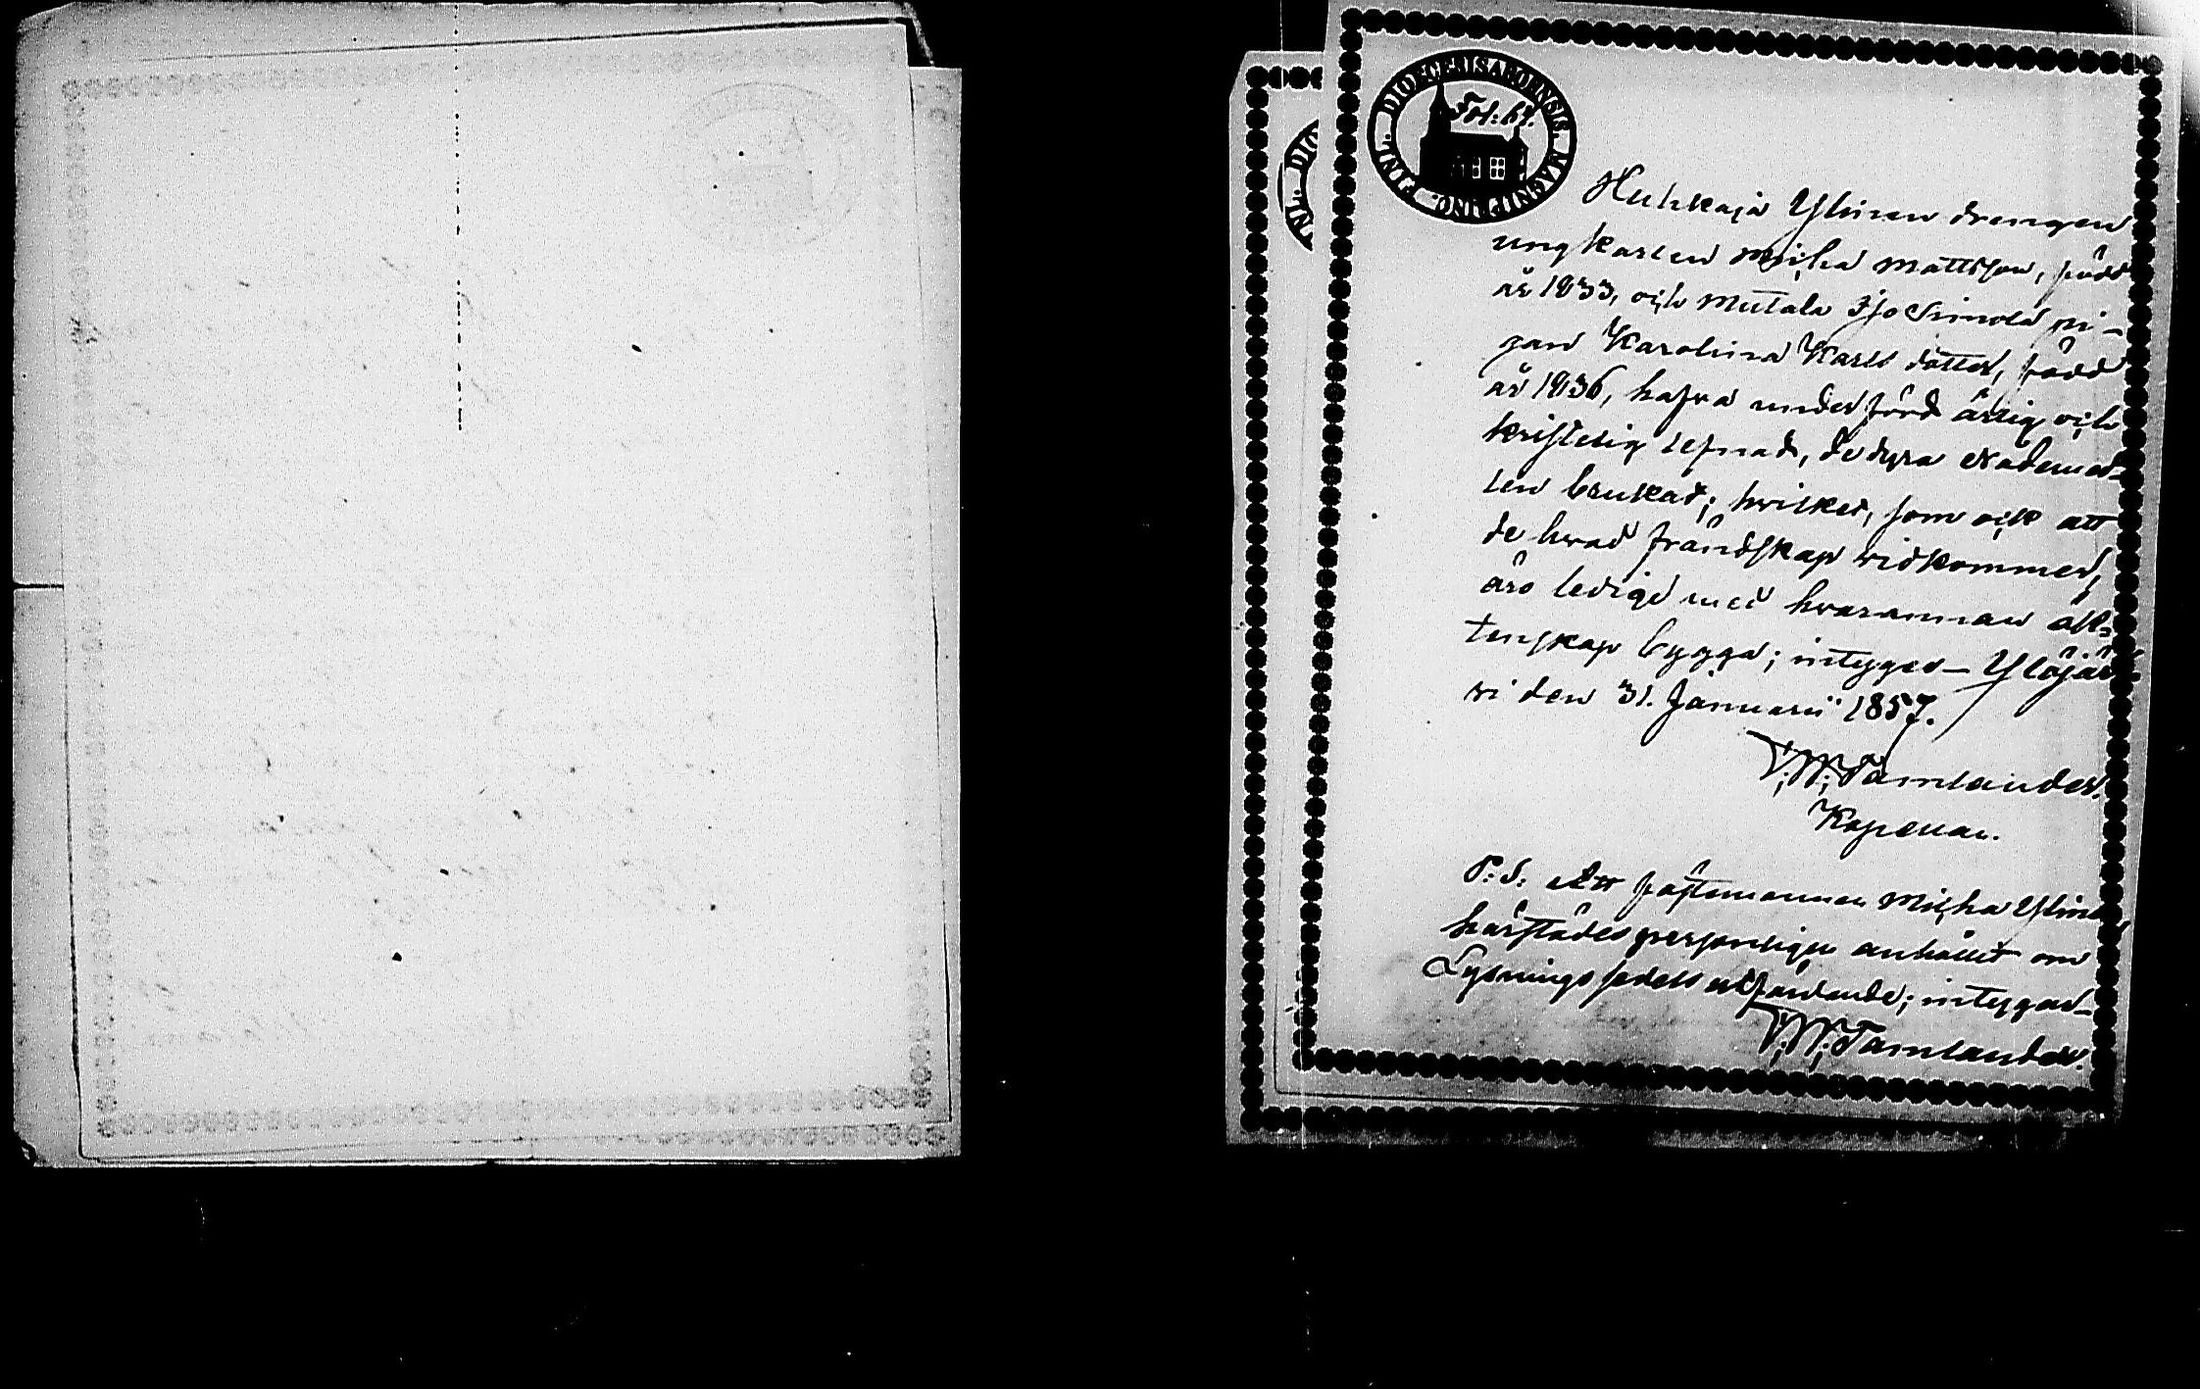 DIOECESIS ABOENSIS. MAGNI PRINC. FINL.
Fol: 61.
Huhkaja Ylinen drengen
ungkarlen Micha Mattsson, född
år 1833, och Mutala Sjo Simola pi-
gan Karolina Karls dotter, född
år 1836, hafva under förd ärlig och
kristelig lefnad, de dyra nådemed-
len brukat; hvilket, som ock att
de hvad frändskap vidkommer,
äro ledige med hvarannan äk-
tenskap bygga; intygar – Ylöjär-
vi den 31. Januarii 1857.
T. W. Tamlander.
Kapellan.
P.S. Att fästemannen Micha Ylinen
härstädes personligen anhållit om
Lysnings sedels utfärdande; intygar –
T. W. Tamlander.